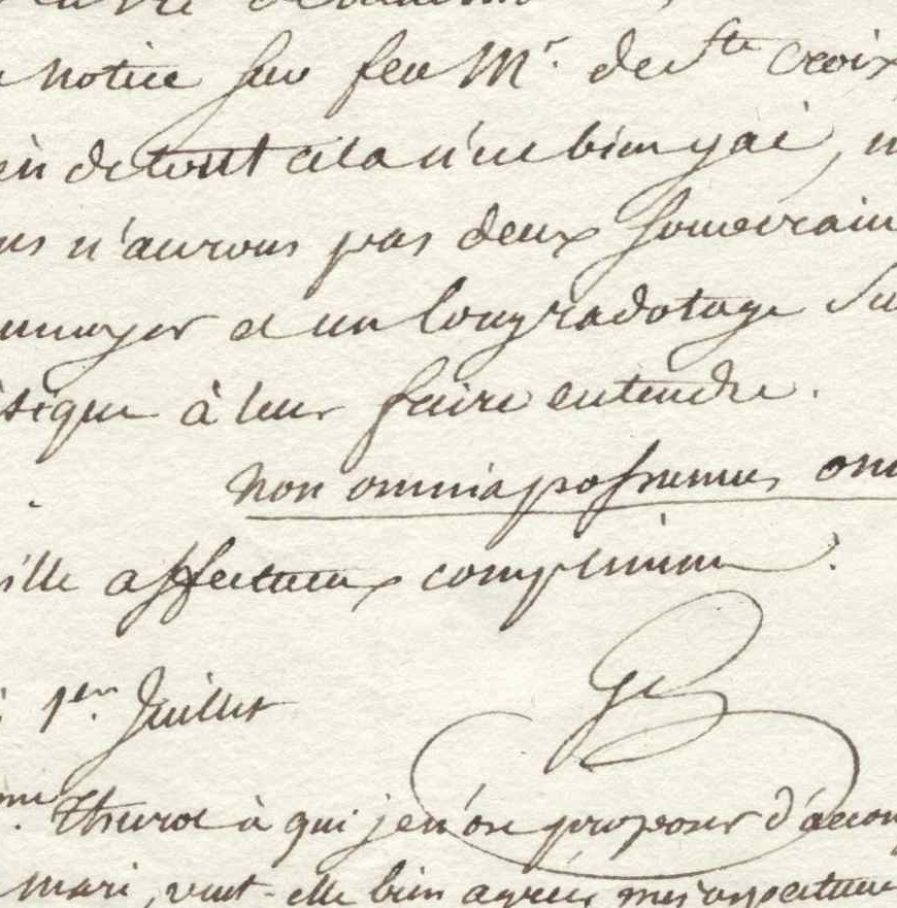 notice sur feu Mr. de Ste croix,
de tout cela n'est bien gai,
n'aurons pas deux Souverain
et un long radotage Su
à leur faire entendre.
non omnia possumus, om
ille affectueux complimens.
1er. Juillet
Thurot à qui je n'ose proposer d'accom
mari, veut-elle bien agréer mes respectueux